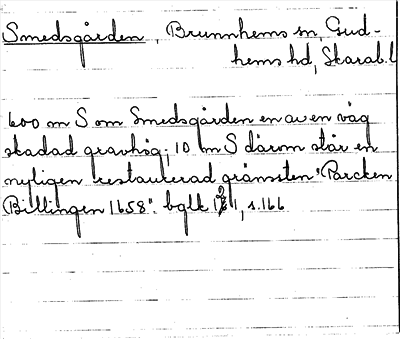 Smedsgården, Brunnhems sn, Gud-
hems hd, Skarab.l
600 m S om Smedsgården en av en väg
skadad gravhög; 10 m S därom står en
nyligen restaurerad gränssten "Parcken
Billingen 1658". bglk 1, s.166